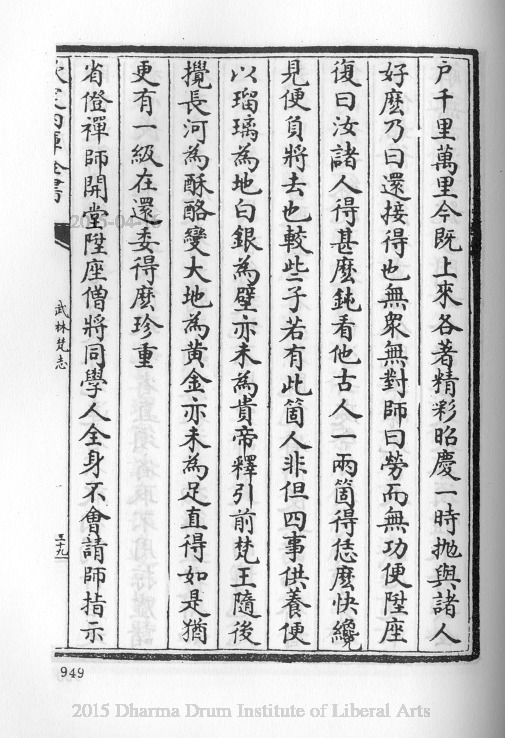 户千里萬里今既上來各著精彩昭慶一時抛與諸人
好麽乃曰還接得也無衆無對師曰勞而無功便陞座
復曰汝諸人得甚麽鈍看他古人一兩箇得恁麽快纔
見便負將去也較些子若有此箇人非但四事供養便
以瑠璃為地白銀為壁亦未為貴帝釋引前梵王隨後
攪長河為酥酪變大地為黄金亦未為足直得如是猶
更有一級在還委得麽珍重
省僜禪師開堂陞座僧將同學人全身不會請師指示
欽定四庫全書
武林梵志
三十九
949
2015 Dharma Drum Institute of Liberal Arts